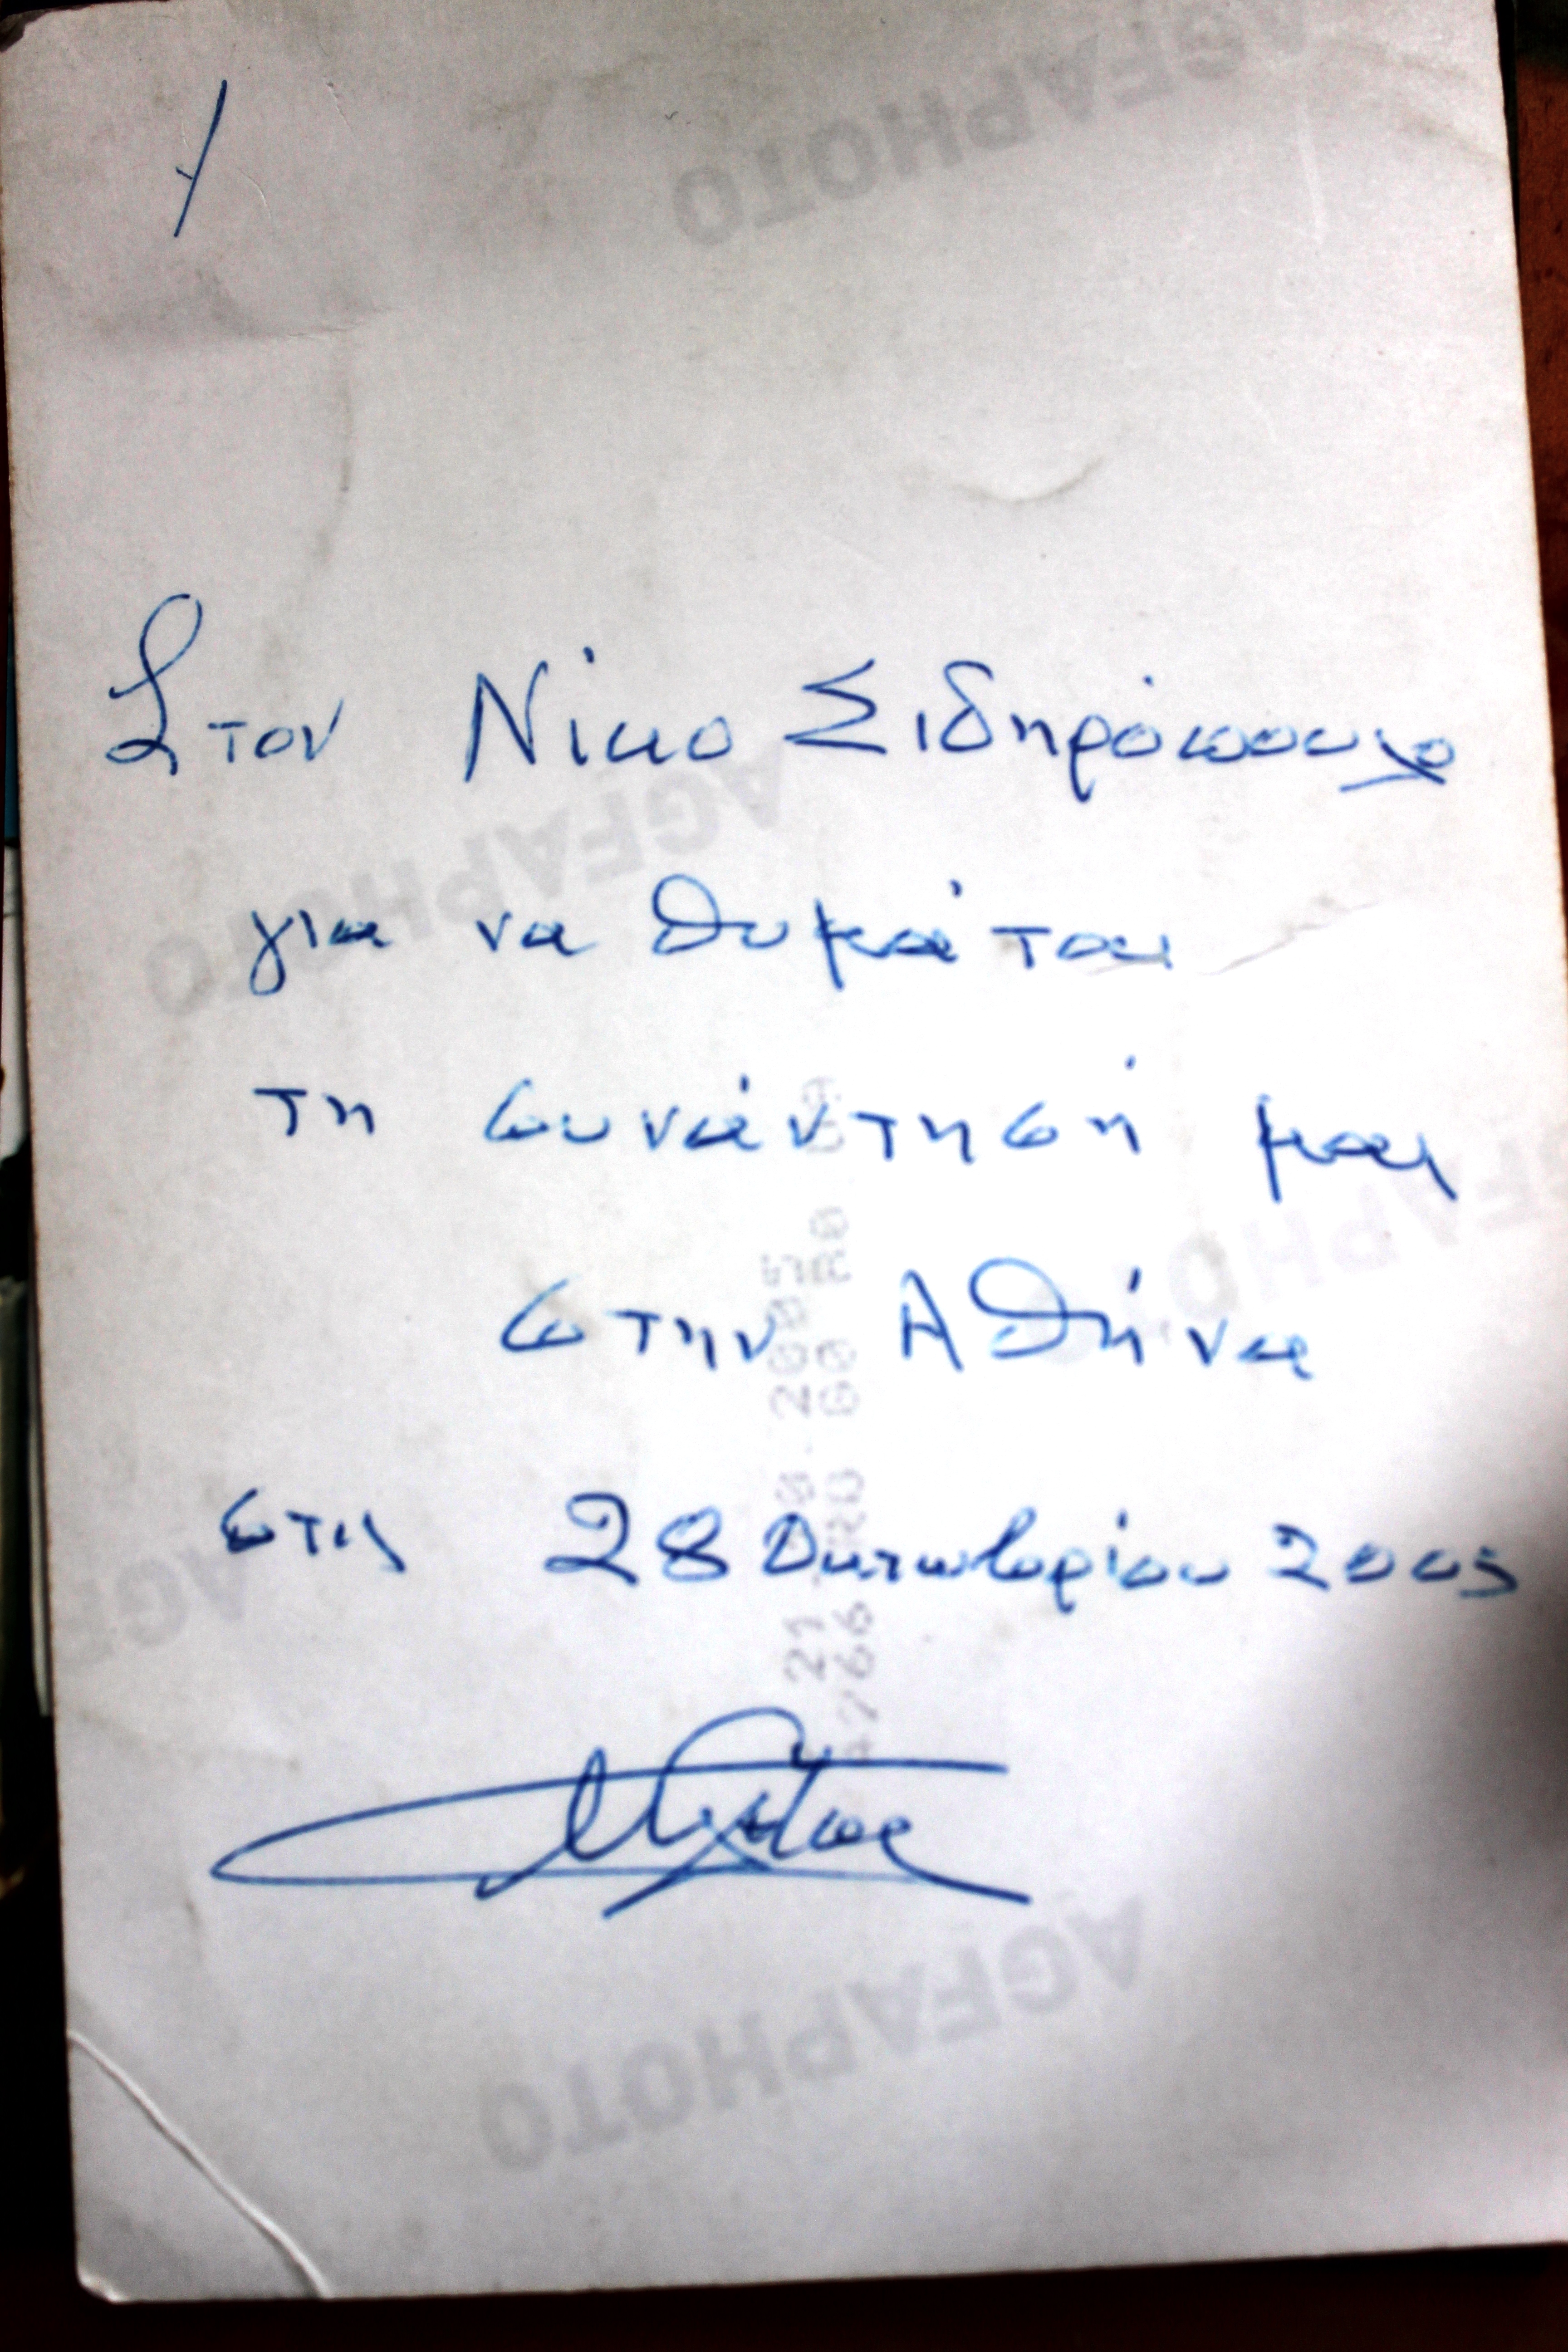 AGFAPHOTO
Στον Νίκο Σιδηρόπουλο
AGFAPHOTO
για να θυμάται
τη συνάντησή μας
στην Αθήνα
στις 28 Οκτωβρίου 2005
AGFAPHOTO